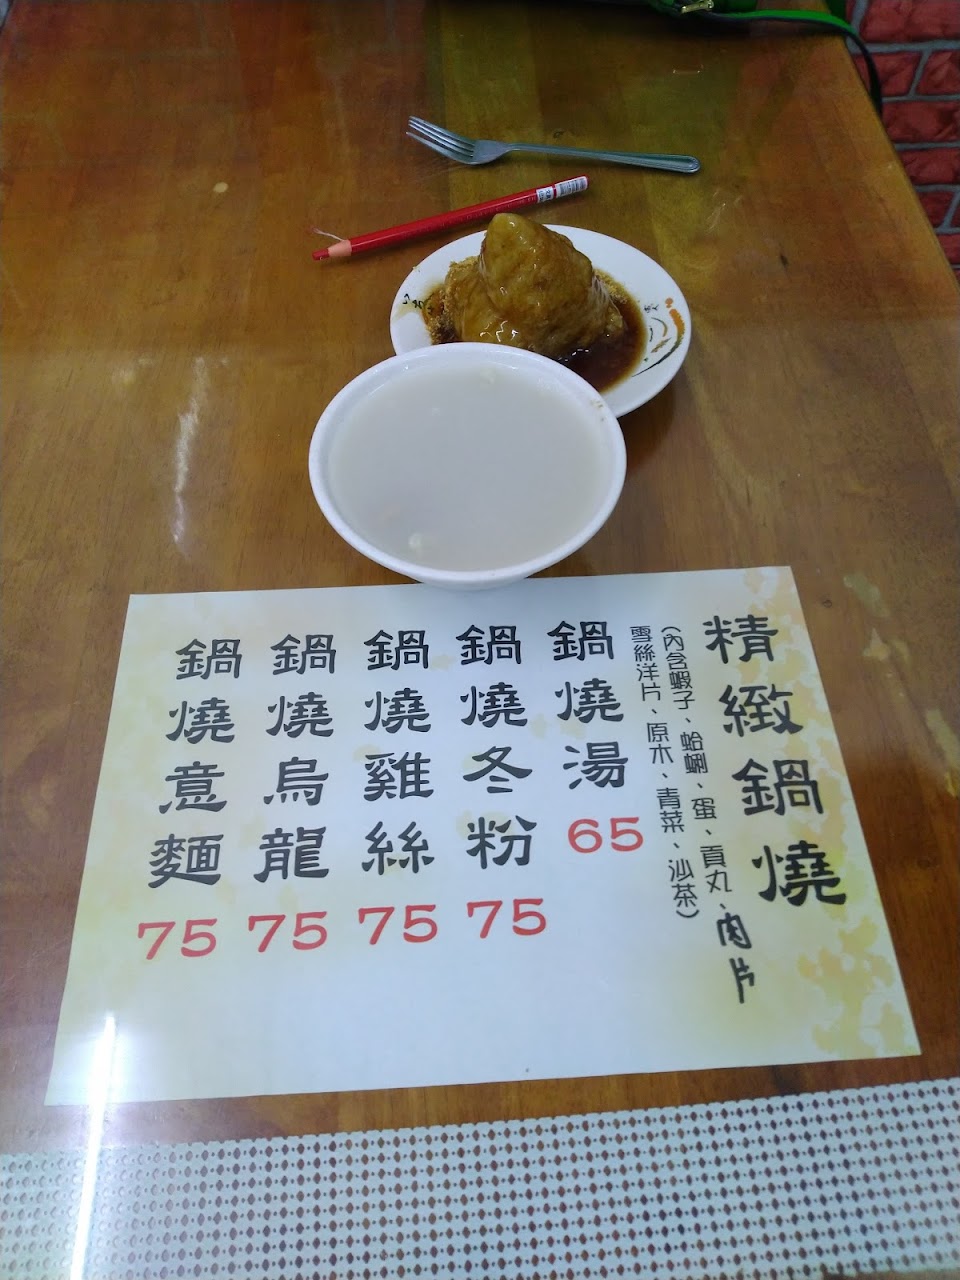 精緻鍋燒
(內含蝦子、蛤蜊、蛋、貢丸、肉片
雪絲洋片、原木、青菜、沙茶)
鍋燒湯 65
鍋燒冬粉 75
鍋燒雞絲 75
鍋燒烏龍 75
鍋燒意麵 75